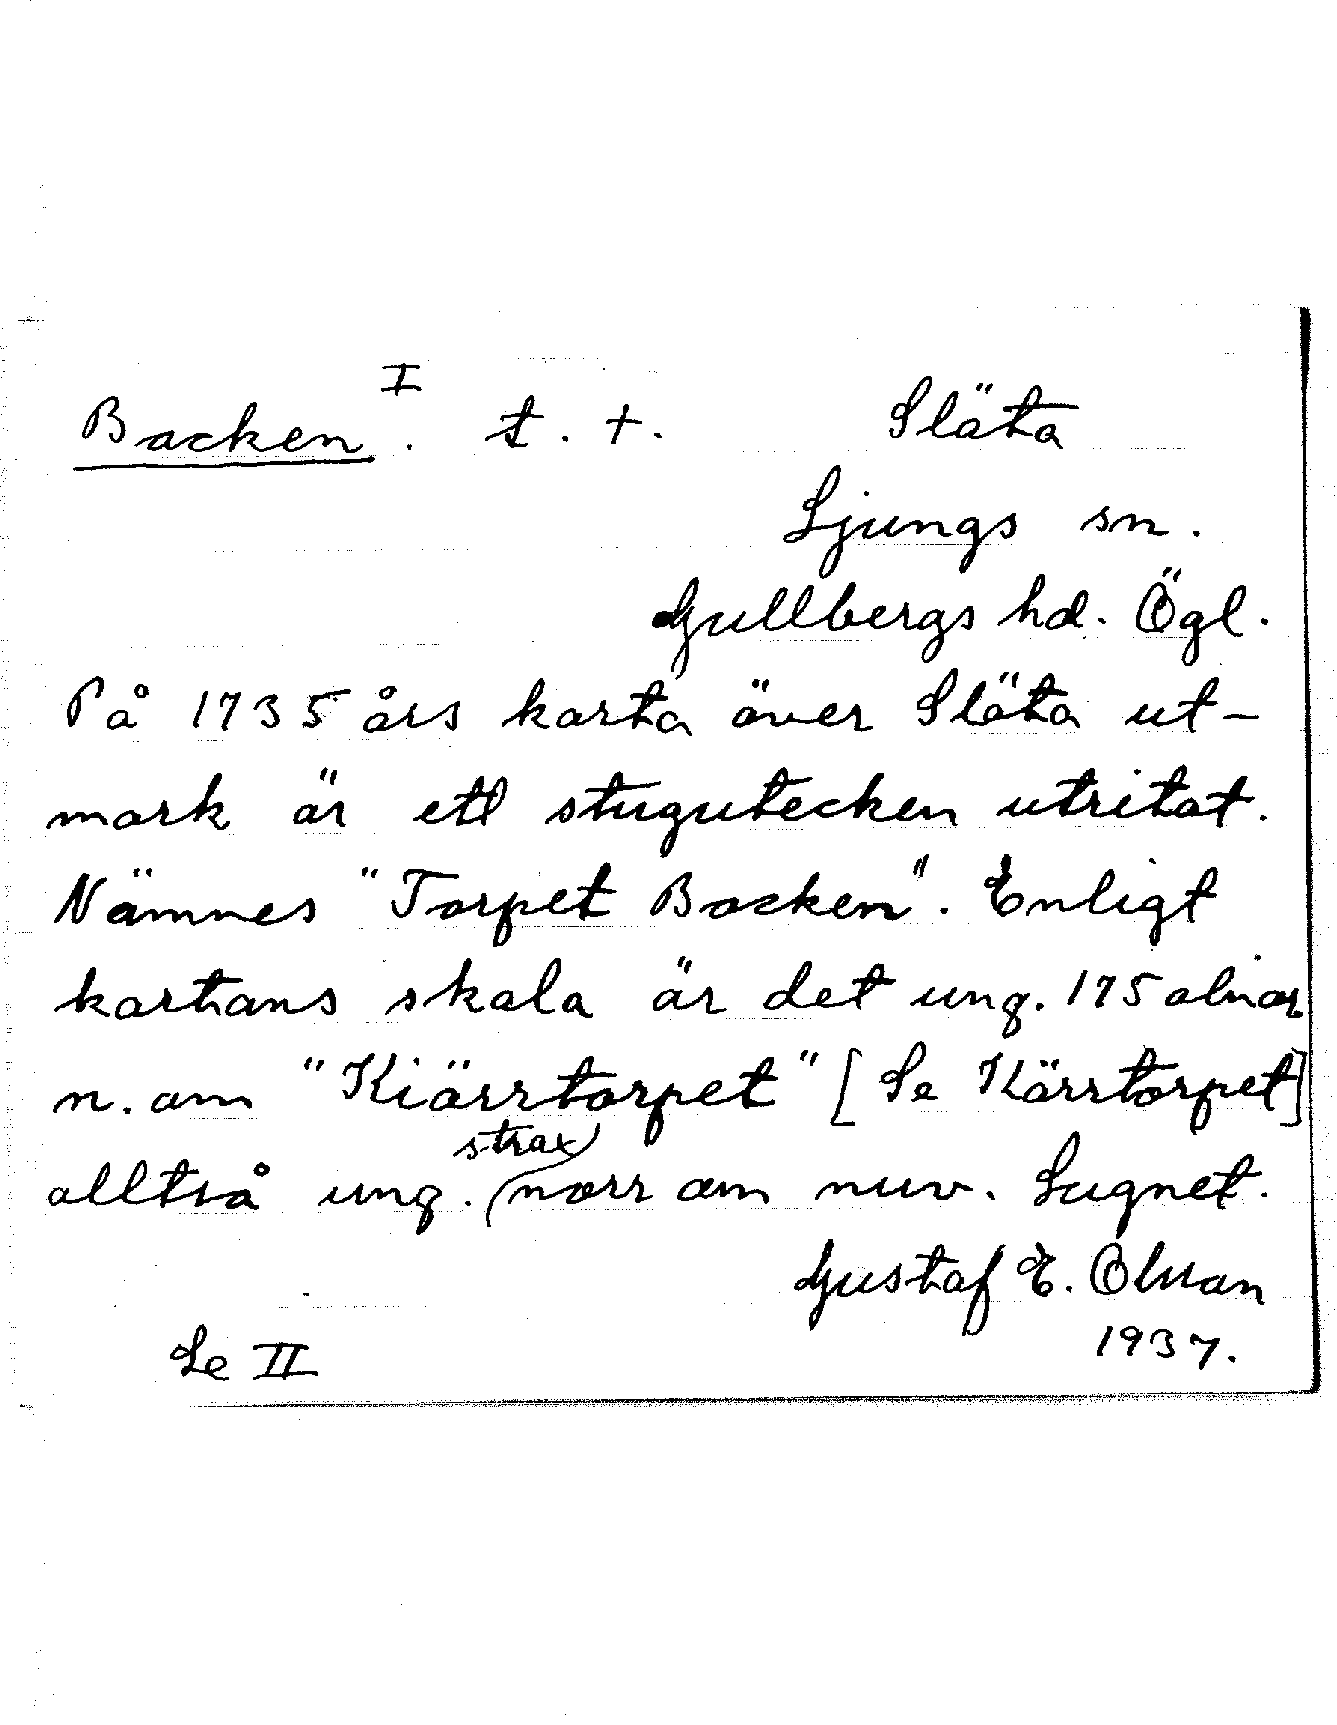 Backen I. t. +. Släta
Ljungs sn.
Gullbergs hd. Ögl.
På 1735 års karta över Släta ut-
mark är ett stugutecken utritat.
Nämnes "Torpet Backen". Enligt
kartans skala är det ung. 175 alnar
n. om "Kiärrtorpet" [Se Kärrtorpet]
alltså ung. strax norr om nuv. Lugnet.
Gustaf E. Olsson
1937.
Se II